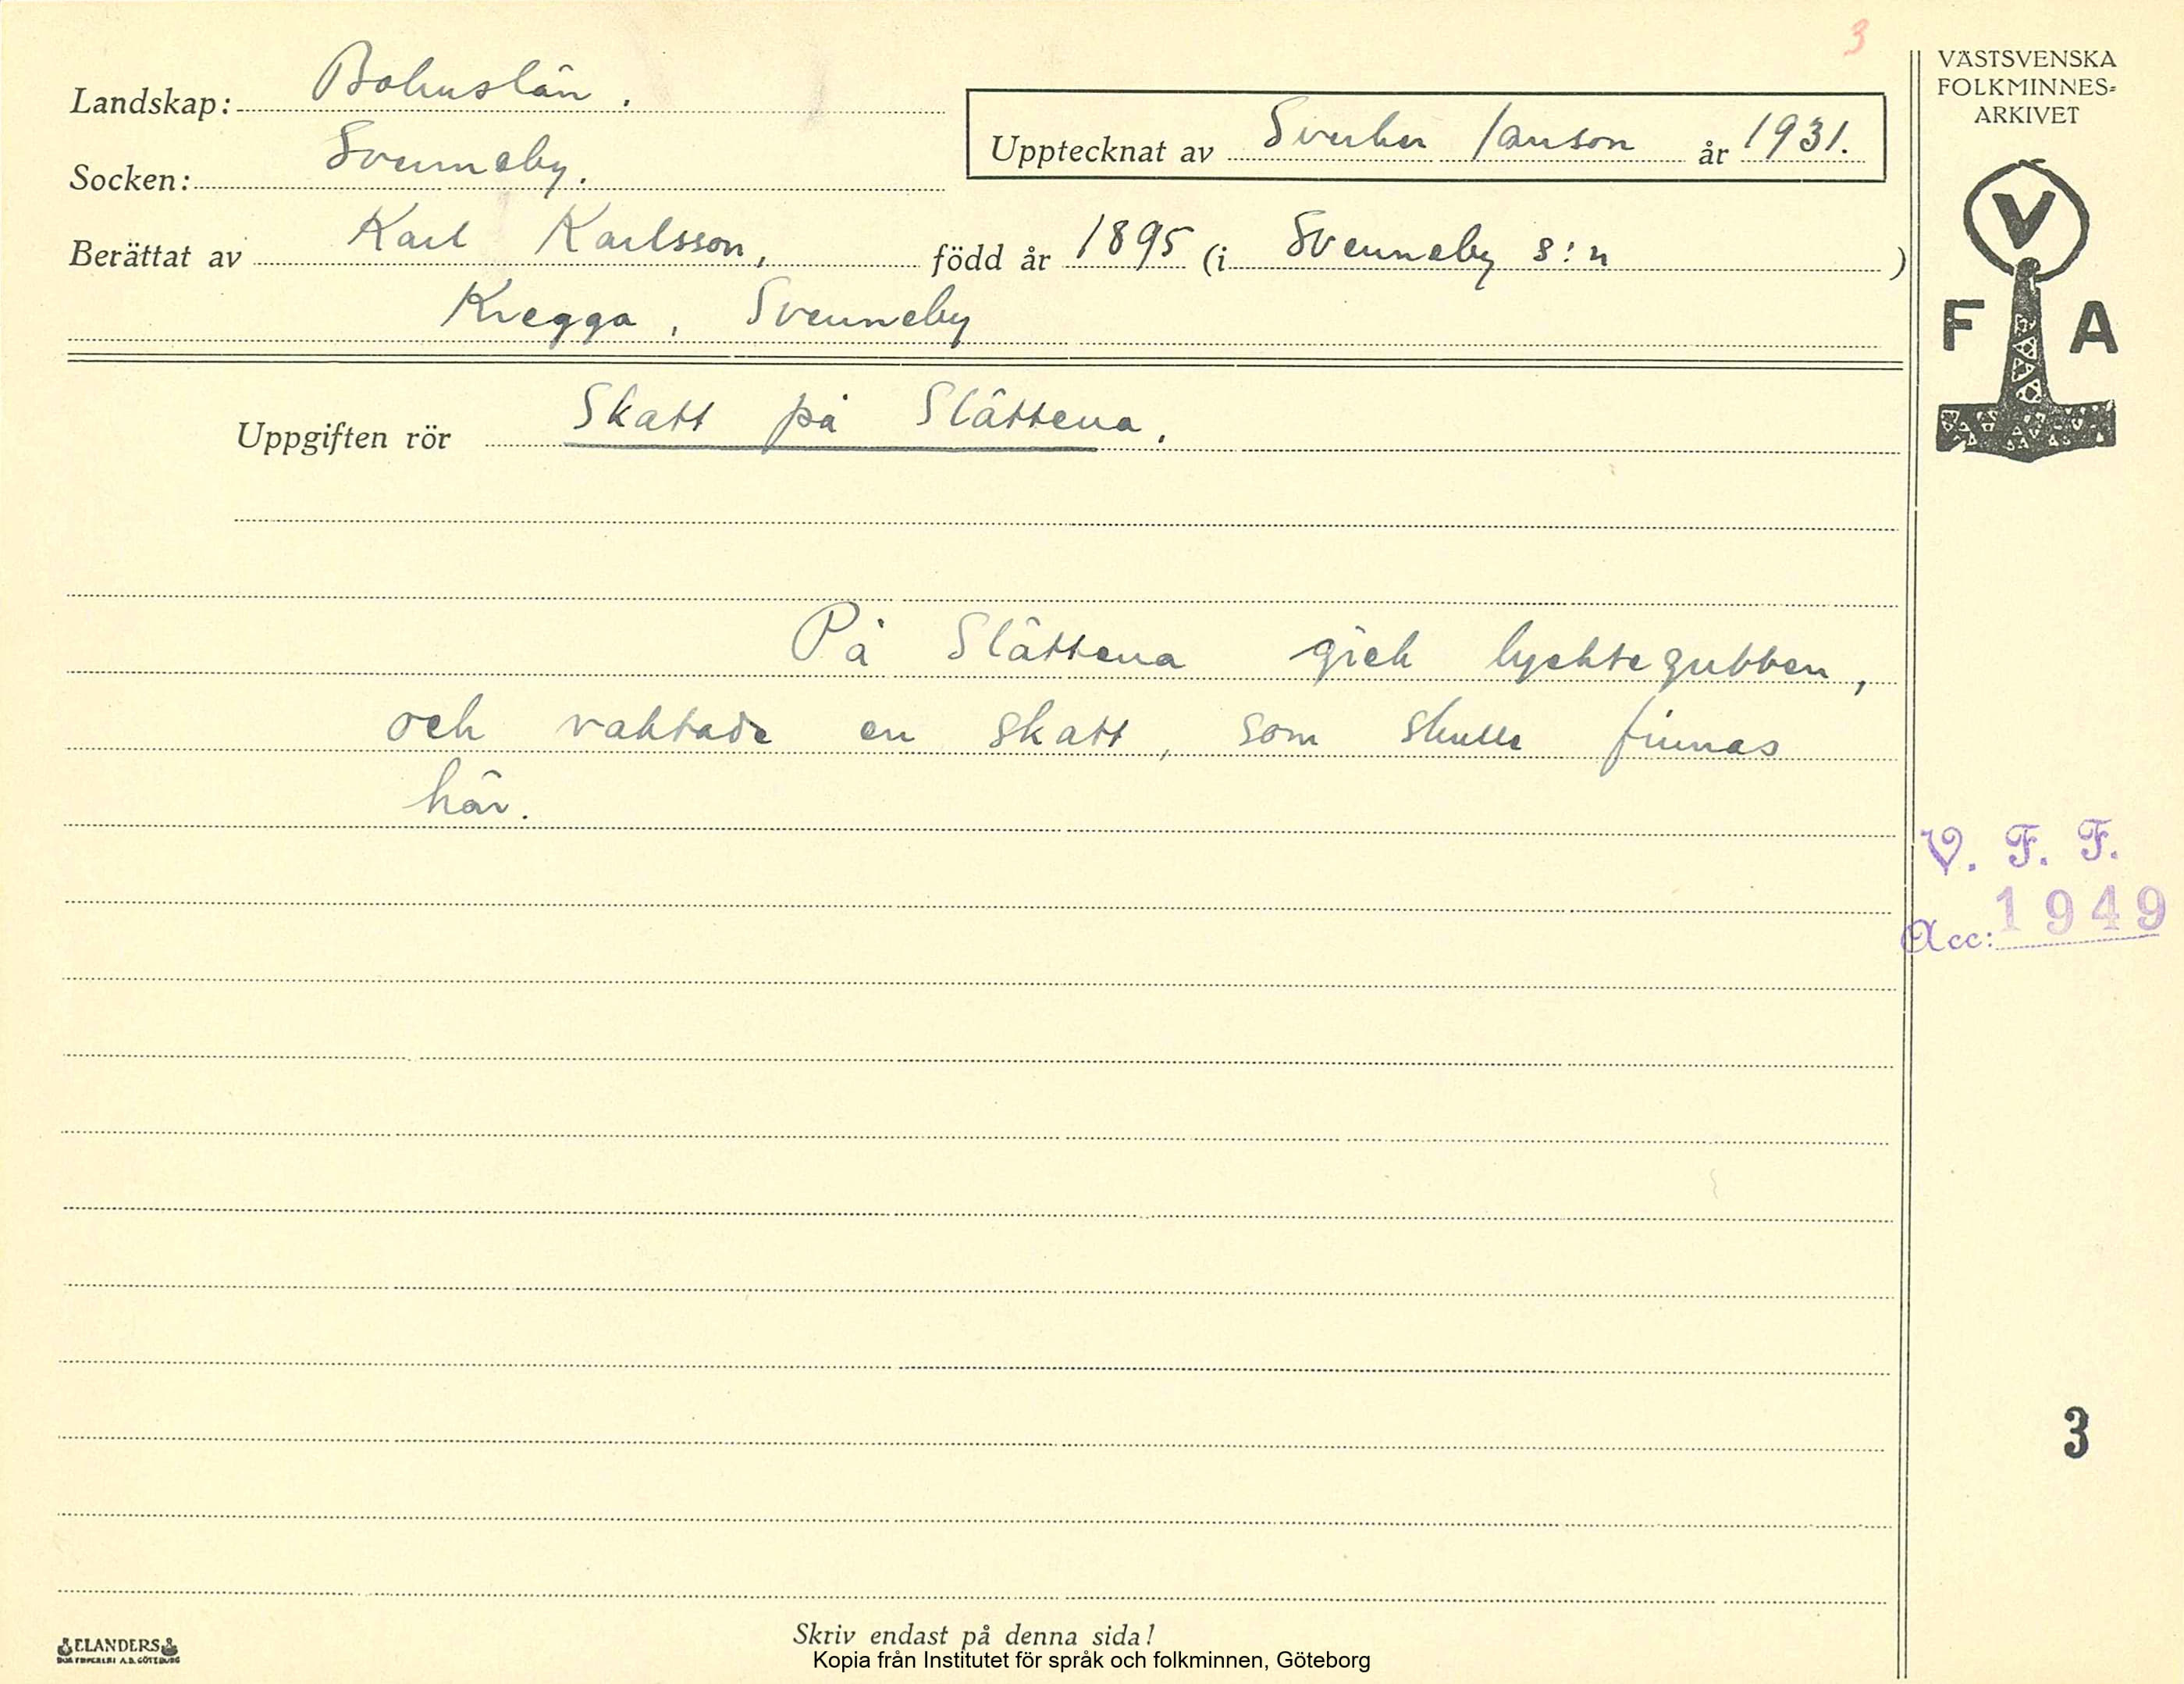 3
Landskap: Bohuslän.
Socken: Svenneby.
Upptecknat av Sverker Janson år 1931.
Berättat av Karl Karlsson, född år 1895 (i Svenneby s:n )
Kregga, Svenneby
Uppgiften rör Skatt på Slättena.
På Slättena gick lycktegubben,
och vaktade en skatt, som skulle finnas
här.
VÄSTSVENSKA
FOLKMINNES=
ARKIVET
V
F A
V. F. F.
Acc: 1949
3
ELANDERS
Skriv endast på denna sida!
Kopia från Institutet för språk och folkminnen, Göteborg